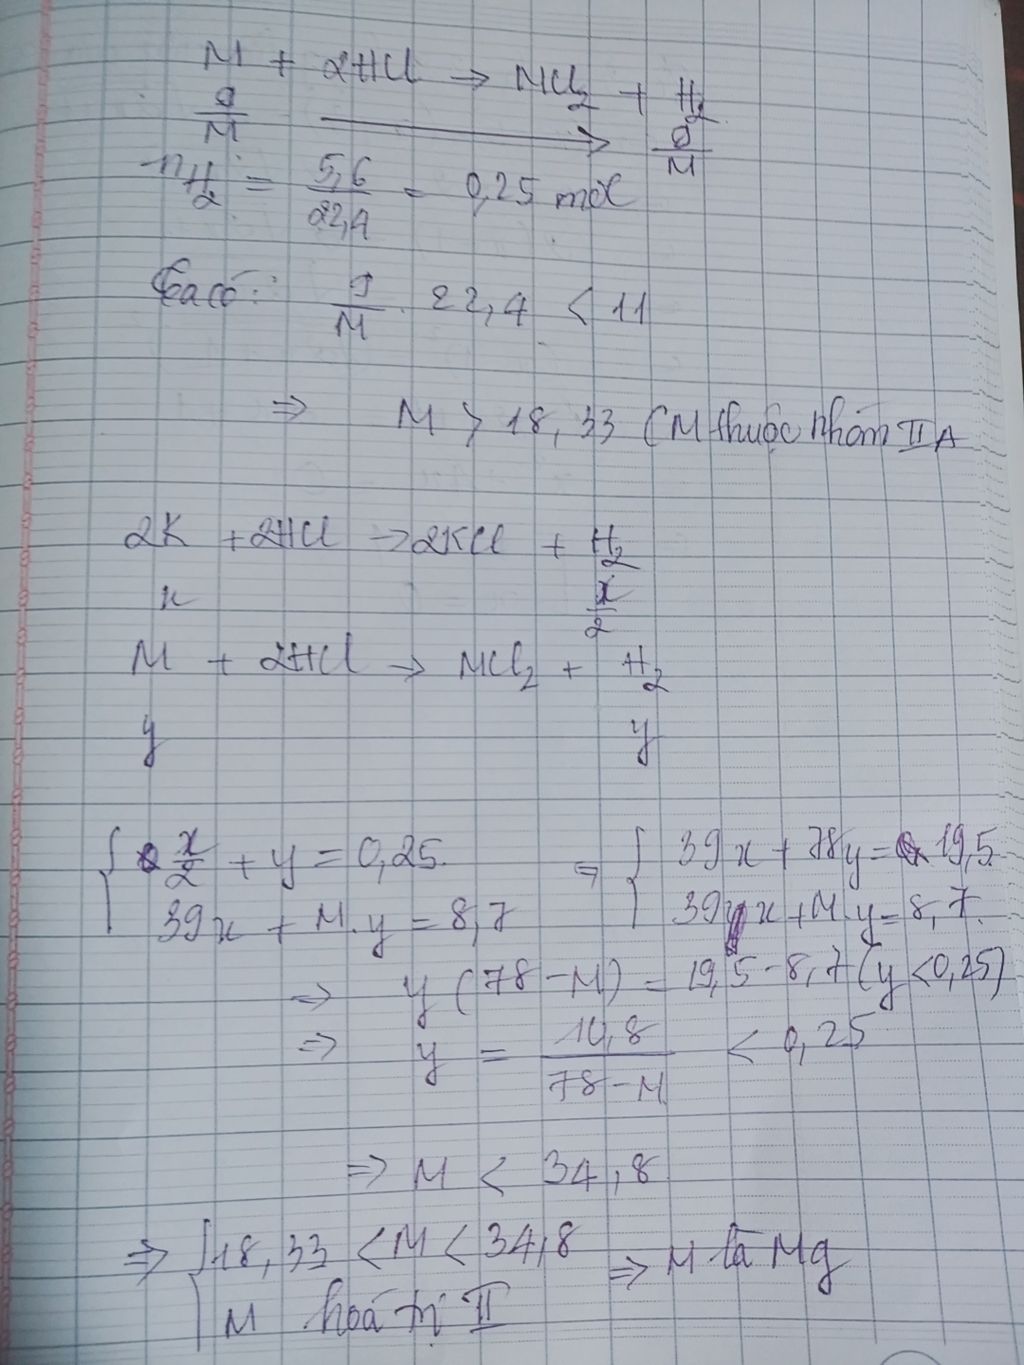 M + 2HCl → MCl₂ + H₂
9/M → 9/M
n H₂ = 5,6/22,4 = 0,25 mol
Ta có: 9/M . 22,4 < 11
⇒ M > 18,33 (M thuộc nhóm IIA
2K + 2HCl → 2KCl + H₂
x x/2
M + 2HCl → MCl₂ + H₂
y y
{ x/2 + y = 0,25 ⇒ { 39x + 78y = 19,5
39x + M.y = 8,7 39x + M.y = 8,7.
⇒ y (78 - M) = 19,5 - 8,7 (y < 0,25)
⇒ y = 10,8/78 - M < 0,25
⇒ M < 34,8
⇒ { 18,33 < M < 34,8 ⇒ M là Mg
M hoá trị II